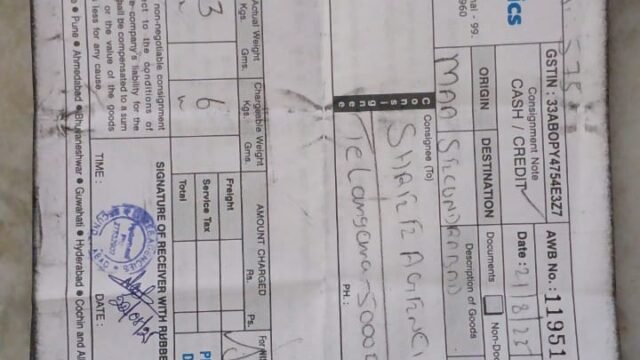 ics
ai - 99.
960
GSTIN : 33ABOPY4754E3Z7
Consignment Note
CASH / CREDIT
AWB No.: 11951
Date : 21/8/23
ORIGIN
DESTINATION
Documents
Non-Do
MAA
Description of Goods
Consignee (To)
Consignee
SHAFFZ AGENCI
Telangana-5000
PH. :
Actual Weight
Kgs.
Gms.
Chargeable Weight
Kgs.
Gms.
3
6
AMOUNT CHARGED
Rs.
Ps.
Freight
Service Tax
Total
non-negotiable consignment
ct to the conditions of
e-company's liability for the
hall be compensated to a sum
or the value of the goods
less for any cause.
SIGNATURE OF RECEIVER WITH RUBBE
TIME :
DATE :
Pune ● Ahmedabad ● Bhubaneshwar ● Guwahati ● Hyderabad ● Cochin and Al